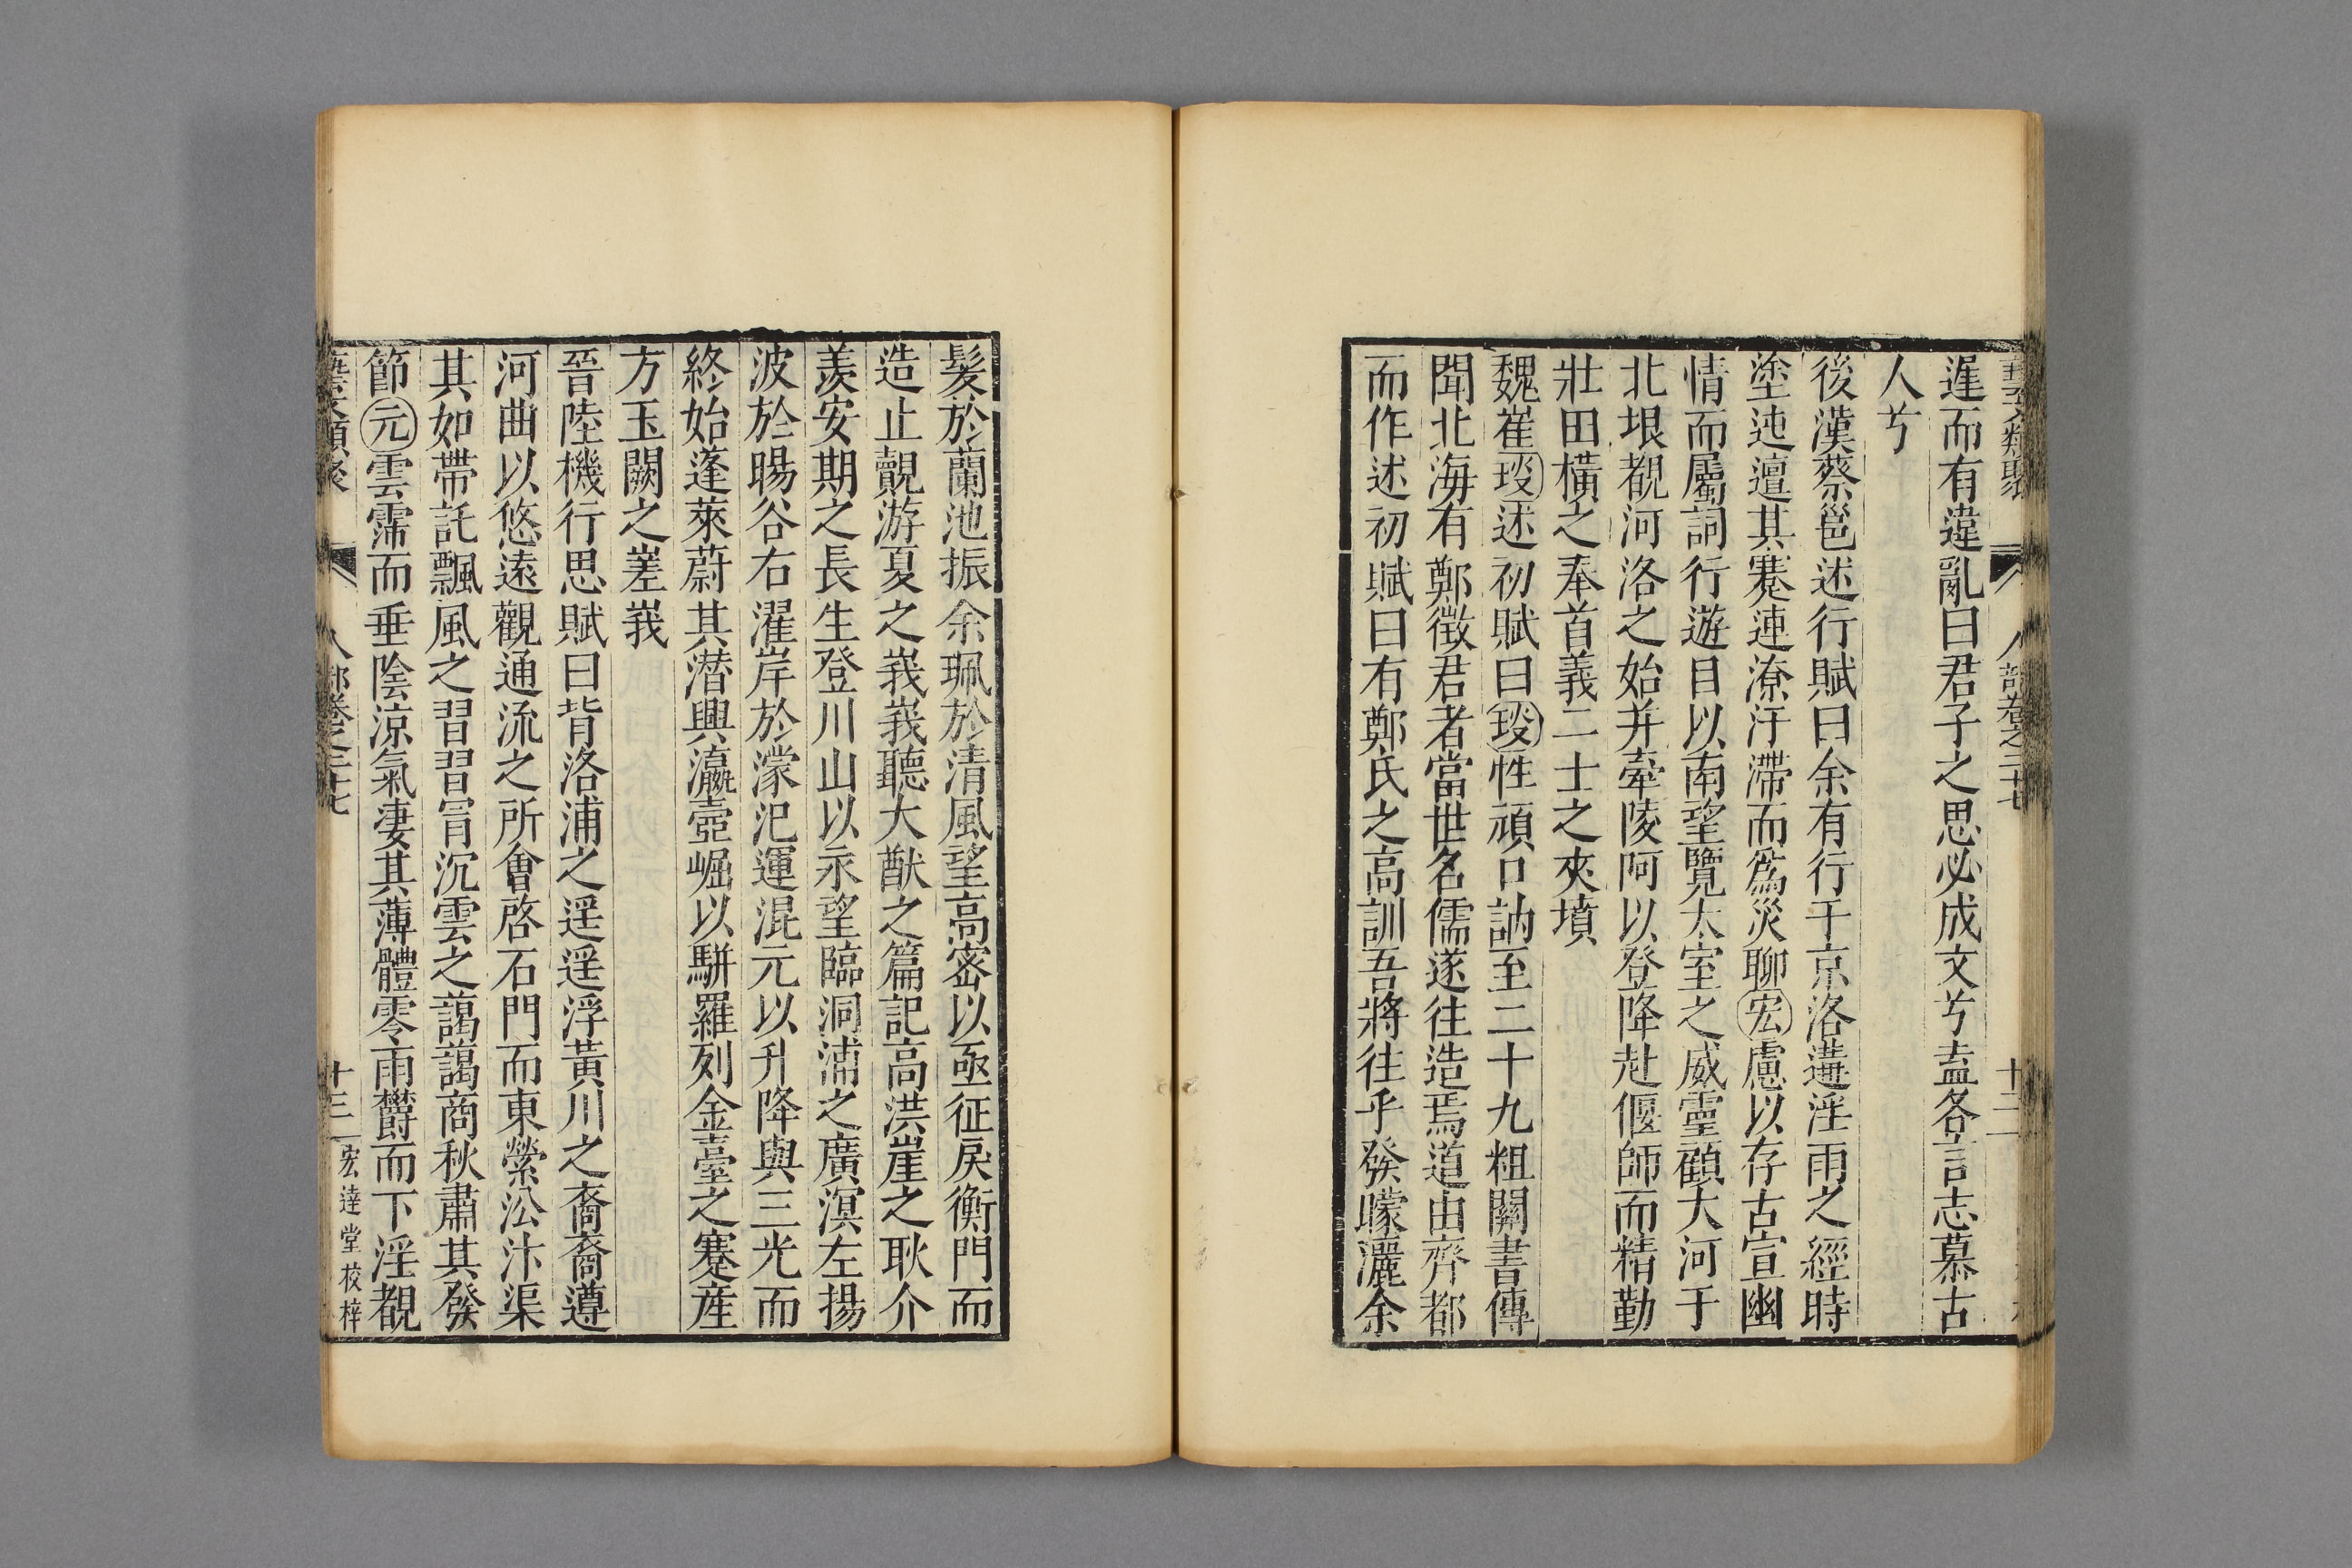 藝文類聚 人部卷之二十七 十二
遅而有違亂曰君子之思必成文兮盍各言志慕古
人兮
後漢蔡邕述行賦曰余有行于京洛遘淫雨之經時
塗迍邅其蹇連潦汙滯而爲災聊宏慮以存古宣幽
情而屬詞行遊目以南望覽太室之威靈顧大河于
北垠覩河洛之始并牽陵阿以登降赴偃師而精勤
壯田橫之奉首義二士之夾墳
魏崔琰述初賦曰琰性頑口訥至二十九粗關書傳
聞北海有鄭徵君者當世名儒遂往造焉道由齊都
而作述初賦曰有鄭氏之高訓吾將往乎發矇灑余
髮於蘭池振余珮於清風望高密以亟征戾衡門而
造止覿游夏之峩峩聽大猷之篇記高洪崖之耿介
羨安期之長生登川山以永望臨洞浦之廣溟左揚
波於暘谷右濯岸於濛汜運混元以升降與三光而
終始蓬萊蔚其潛興瀛壺崛以駢羅列金臺之蹇產
方玉闕之嵳峩
晉陸機行思賦曰背洛浦之遥遥浮黃川之裔裔遵
河曲以悠遠觀通流之所會啓石門而東縈㳂汴渠
其如帶託飄風之習習冐沉雲之藹藹商秋肅其發
節元雲霈而垂陰涼氣凄其薄體零雨欝而下淫覩
藝文類聚 人部卷之二十七 十三 宏達堂校梓